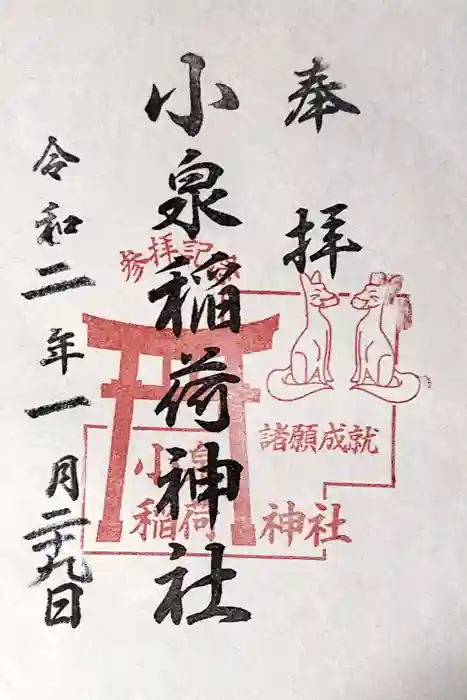 奉拝
小泉稲荷神社
令和二年一月二十九日
参拝記念
諸願成就
小泉
稲荷神社